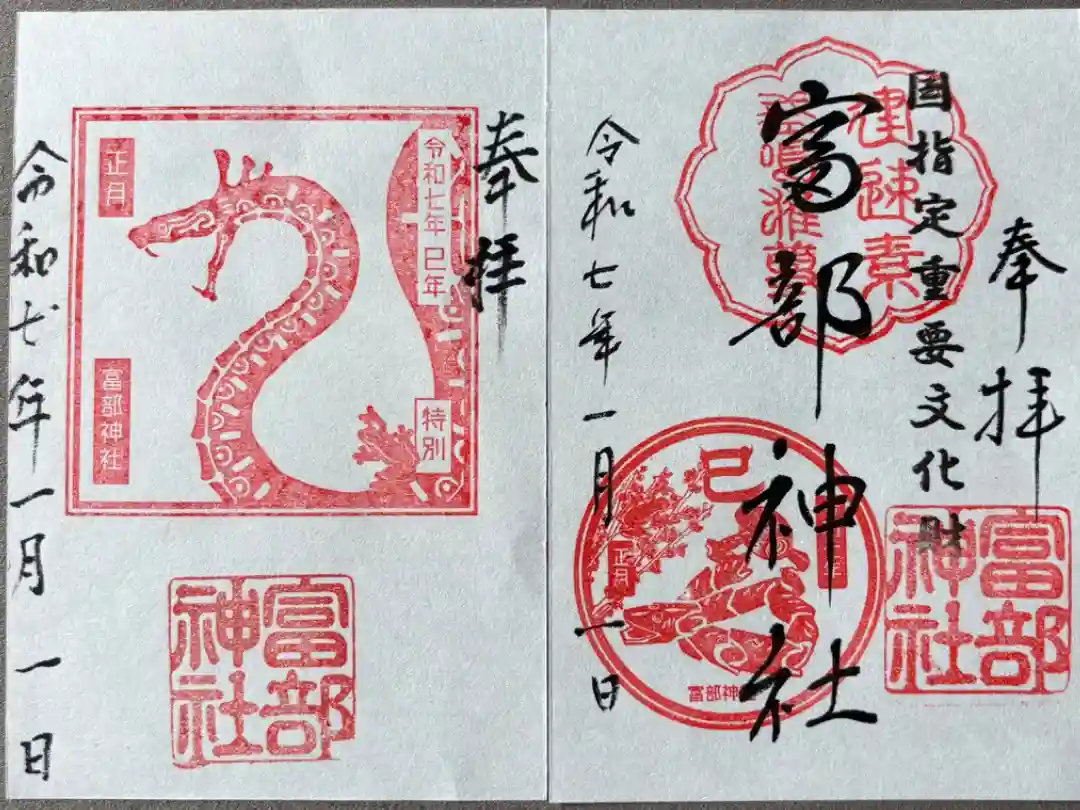 奉拝
国指定重要文化財
建速素
富部神社
富部
神社
巳
正月
富部神
令和七年一月一日
奉拝
令和七年 巳年
特別
正月
富部神社
富部
神社
令和七年一月一日